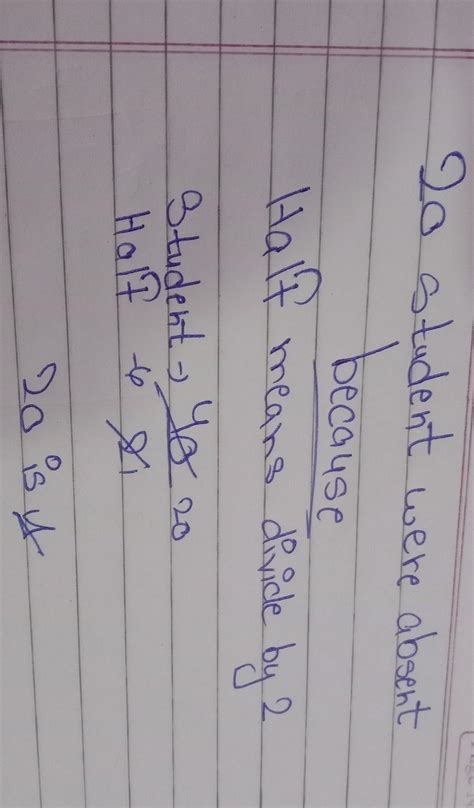 20 student were absent
because
Half means divide by 2
Student → 40 20
Half → 2 1
20 is